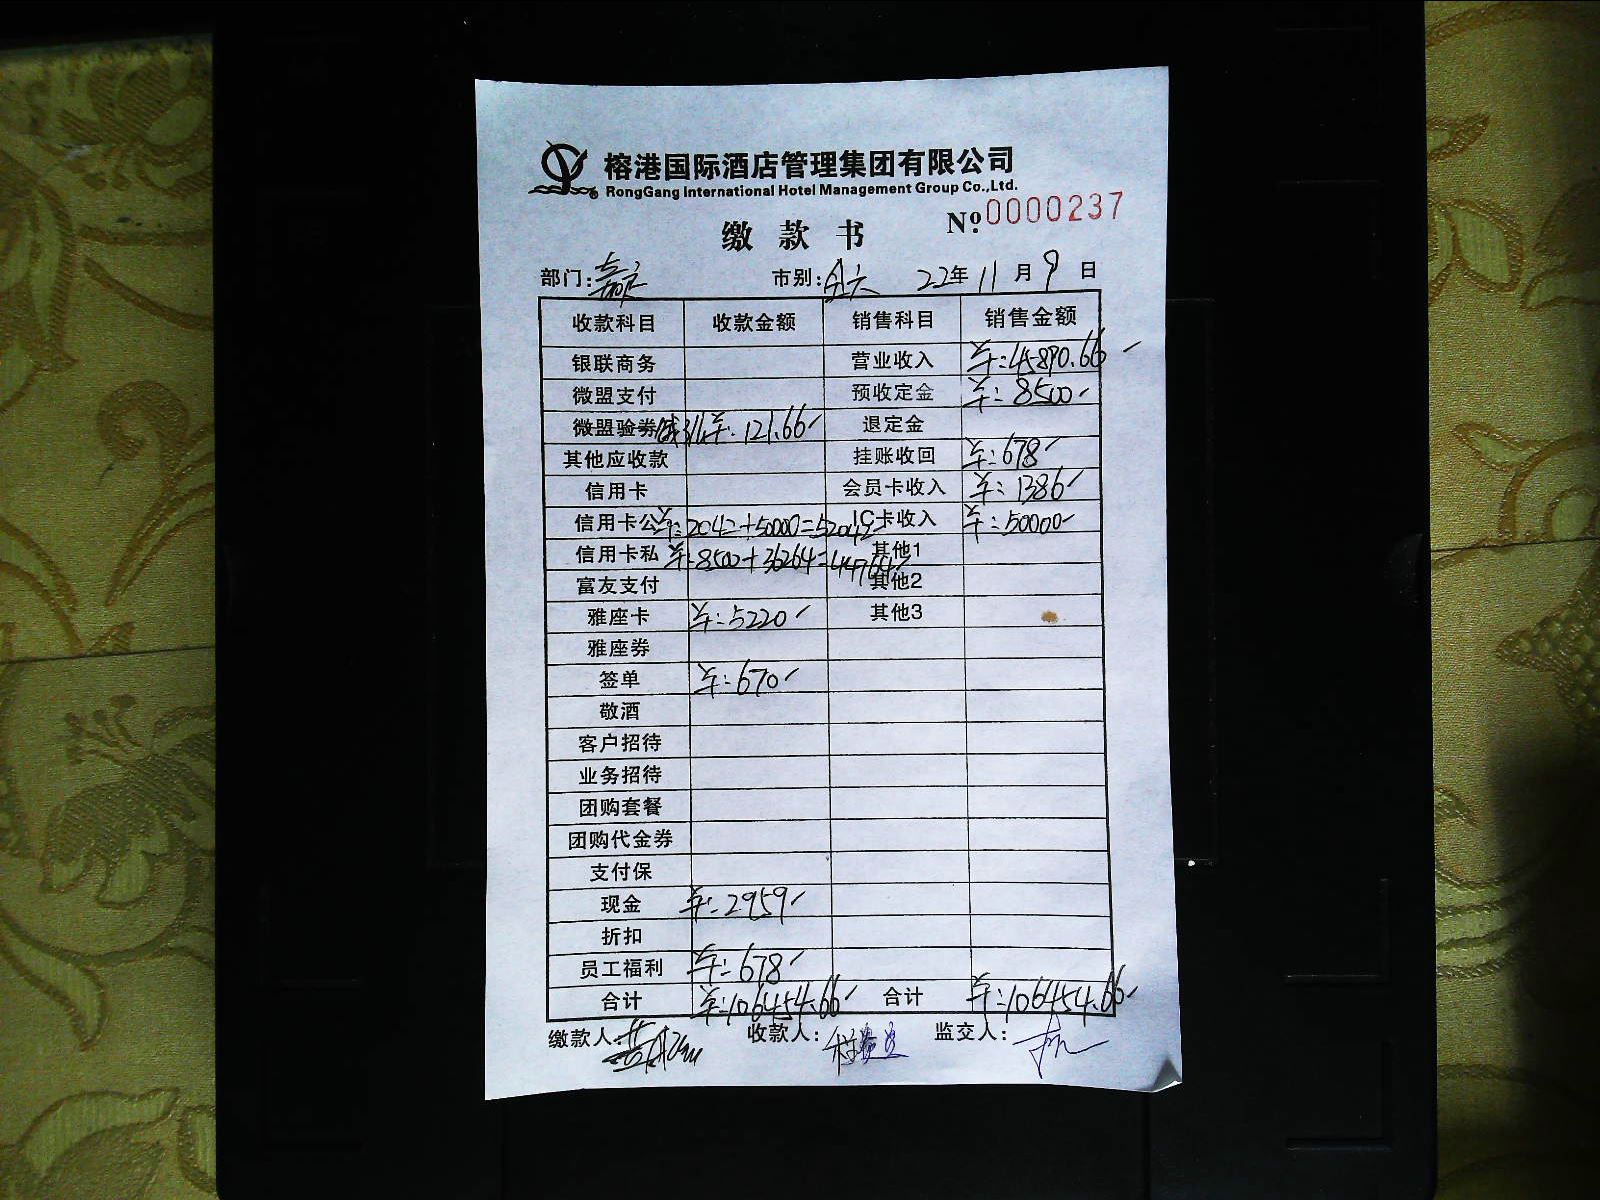 榕港国际酒店管理集团有限公司
RongGang International Hotel Management Group Co.,Ltd.
缴 款 书 Nº: 0000237
部门: 市别: 22年 11 月 9 日
收款科目 收款金额 销售科目 销售金额
银联商务 营业收入 卡:45890.66
微盟支付 预收定金 卡:8500
微盟验券 121.66 退定金
其他应收款 挂账收回 卡:678
信用卡 会员卡收入 卡:1386
信用卡公 2042+50000=52042 IC卡收入 卡:50000
信用卡私 8500+36264=44764 其他1
富友支付 其他2
雅座卡 卡:5220 其他3
雅座券
签单 卡:670
敬酒
客户招待
业务招待
团购套餐
团购代金券
支付保
现金 卡:2959
折扣
员工福利 卡:678
合计 卡:106454.66 合计 卡:106454.66
缴款人: 收款人: 监交人: